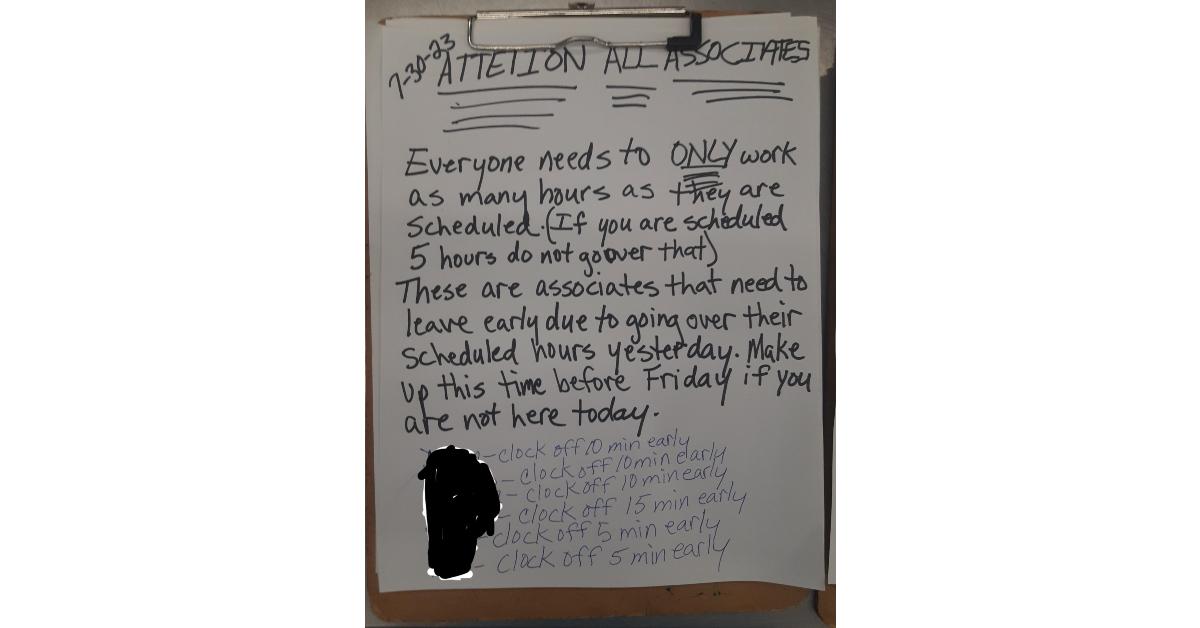 7-30-23
ATTETION ALL ASSOCITATES
Everyone needs to ONLY work
as many hours as they are
scheduled. (If you are scheduled
5 hours do not go over that)
These are associates that need to
leave early due to going over their
scheduled hours yesterday. Make
up this time before Friday if you
are not here today.
- clock off 10 min early
- clock off 10 min early
- clock off 10 min early
- clock off 15 min early
- clock off 5 min early
- clock off 5 min early